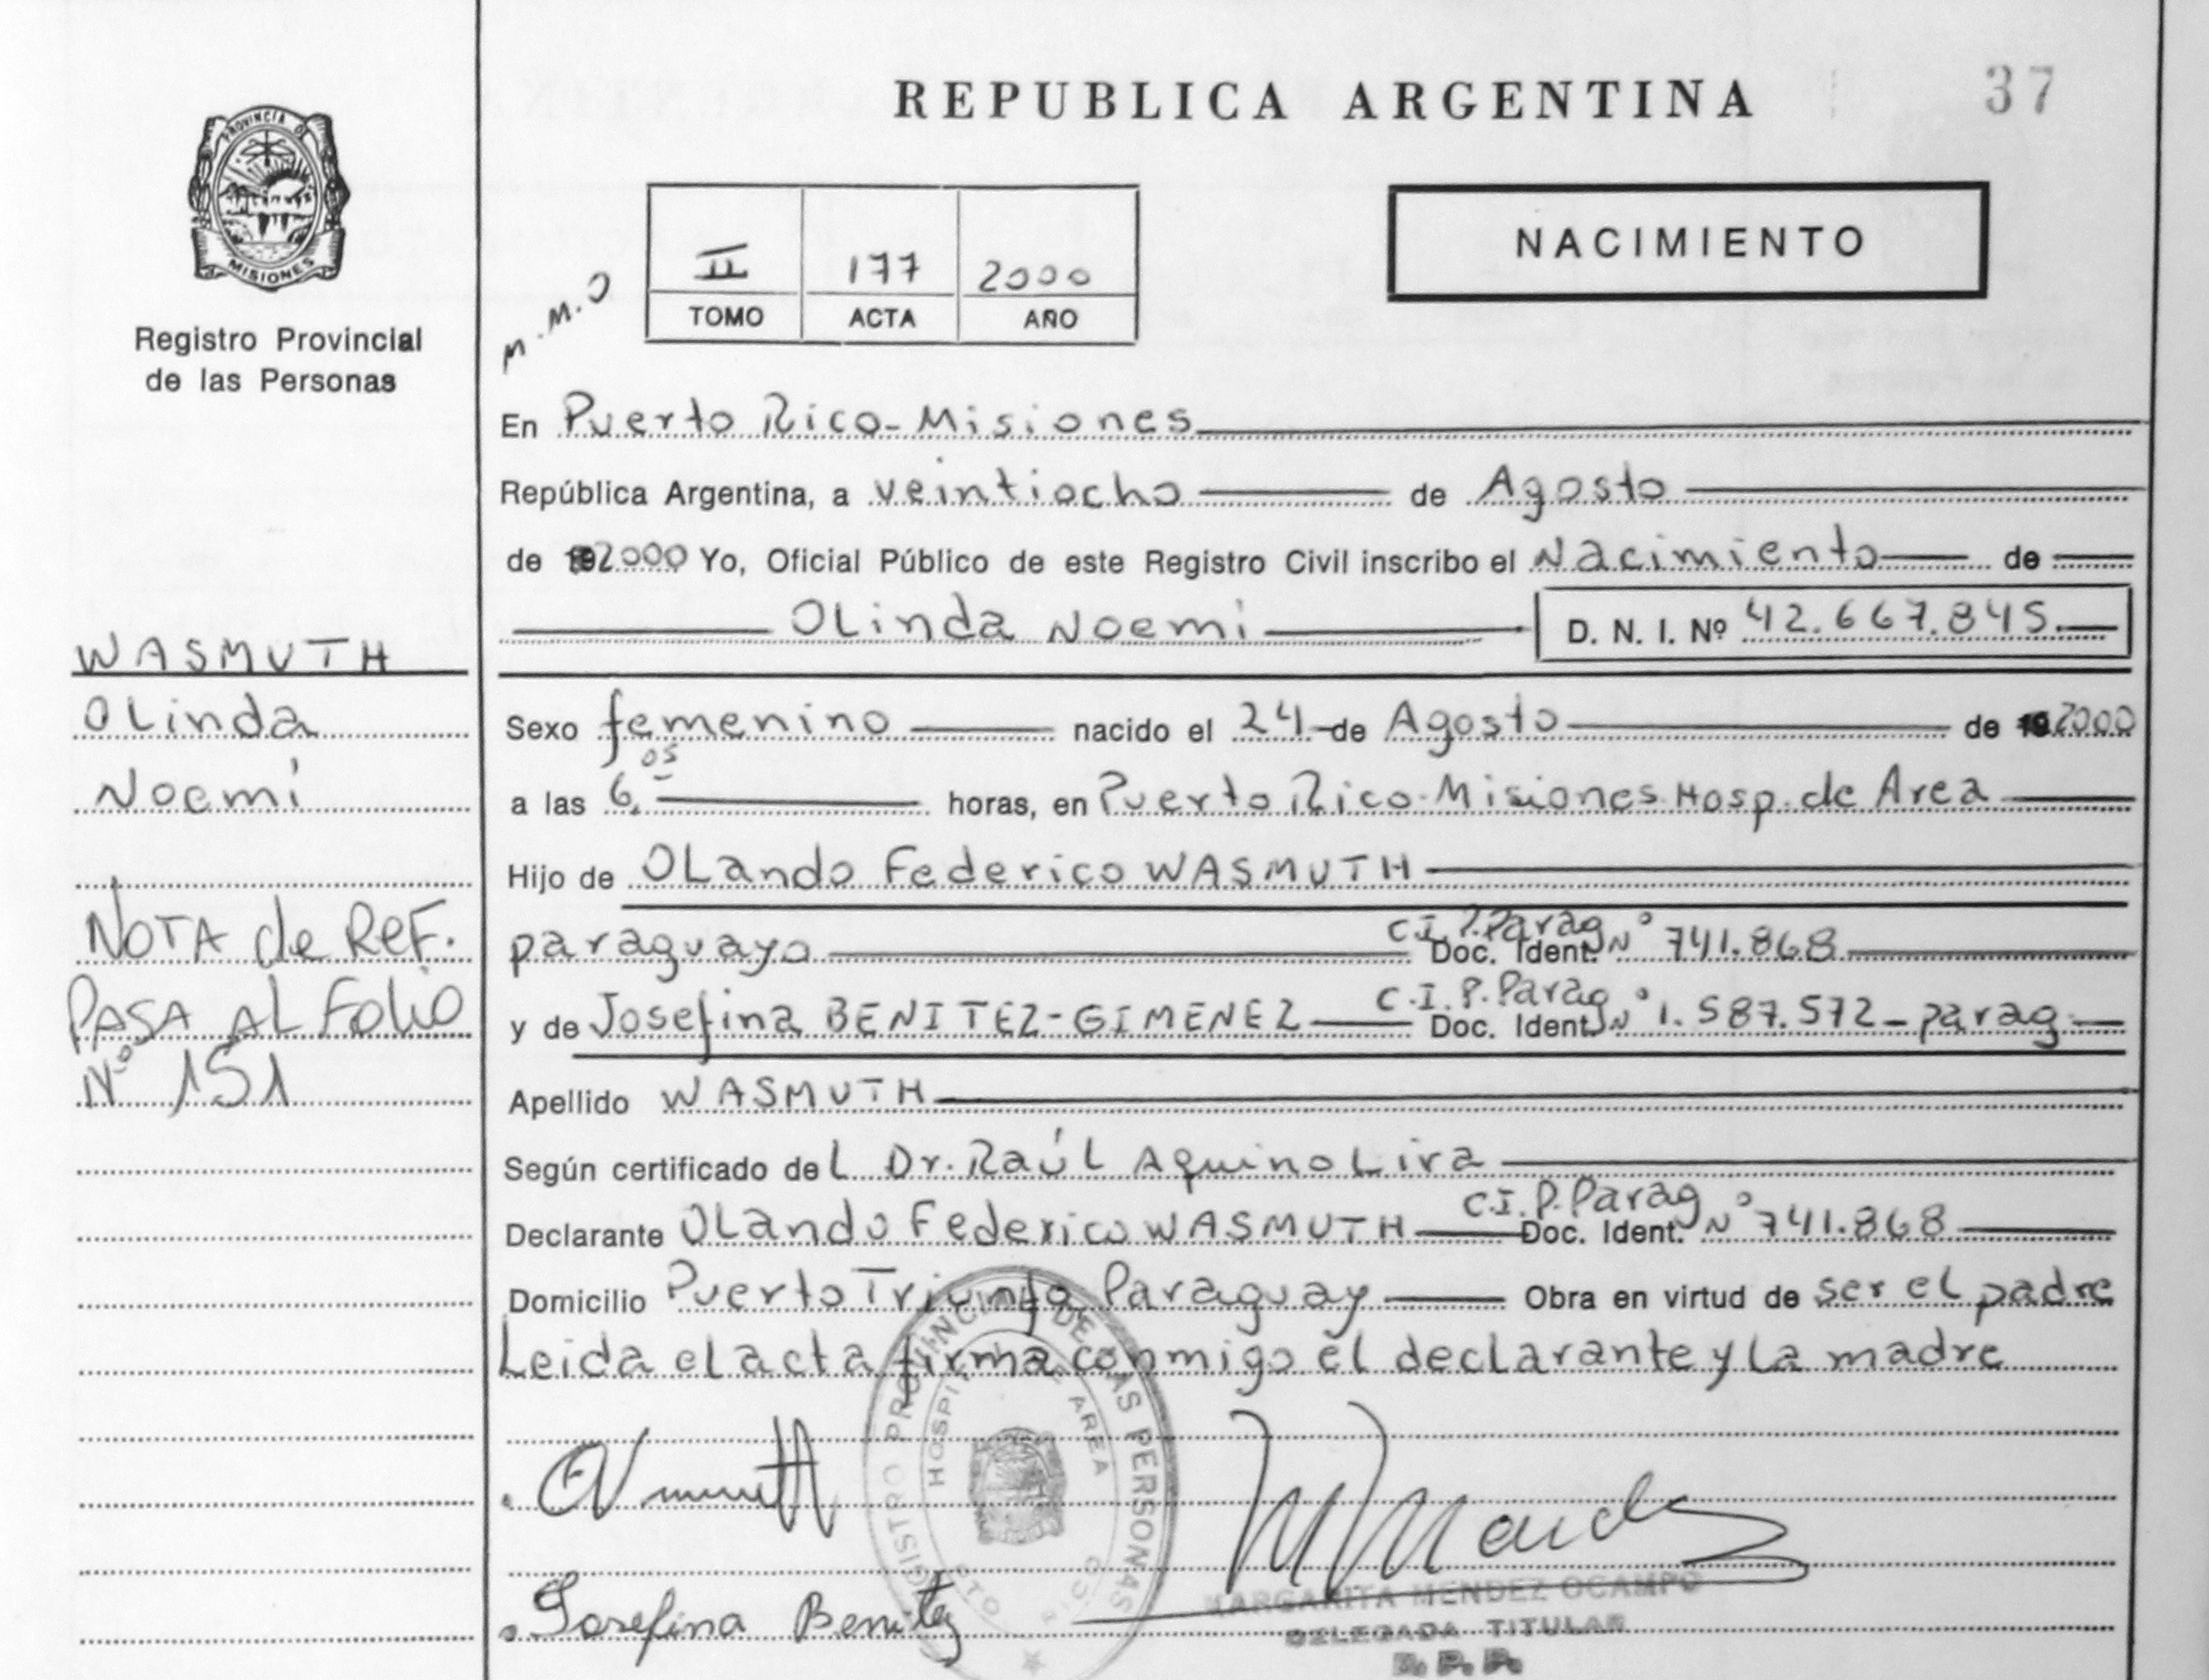 REPUBLICA ARGENTINA
37
PROVINCIA DE
MISIONES
Registro Provincial
de las Personas
M.M.O
II 177 2000
TOMO ACTA AÑO
NACIMIENTO
En Puerto Rico-Misiones
República Argentina, a veintiocho de Agosto
de 192000 Yo, Oficial Público de este Registro Civil inscribo el Nacimiento de
OLinda Noemi D. N. I. Nº 42.667.845.
WASMUTH
OLinda
Noemi
NOTA de REF.
PASA AL FOLIO
Nº 151
Sexo femenino nacido el 24 de Agosto de 192000
a las 6,05 horas, en Puerto Rico-Misiones Hosp. de Area
Hijo de OLando Federico WASMUTH
paraguayo C.I.P.Parag Doc. Ident. Nº 741.868
y de Josefina BENITEZ-GIMENEZ C.I.P.Parag Doc. Ident. Nº 1.587.572-parag.
Apellido WASMUTH
Según certificado del Dr. Raúl Aquino Lira
Declarante OLando Federico WASMUTH C.I.P.Parag Doc. Ident. Nº 741.868
Domicilio Puerto Triunfo, Paraguay Obra en virtud de ser el padre
Leida el acta firma conmigo el declarante y La madre
REGISTRO PROVINCIAL DE LAS PERSONAS
HOSPITAL DE AREA
PTO RICO
Josefina Benitez
MARGARITA MENDEZ OCAMPO
DELEGADA TITULAR
R.P.P.